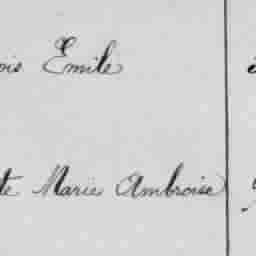 ois Emile
te Marie Ambroise